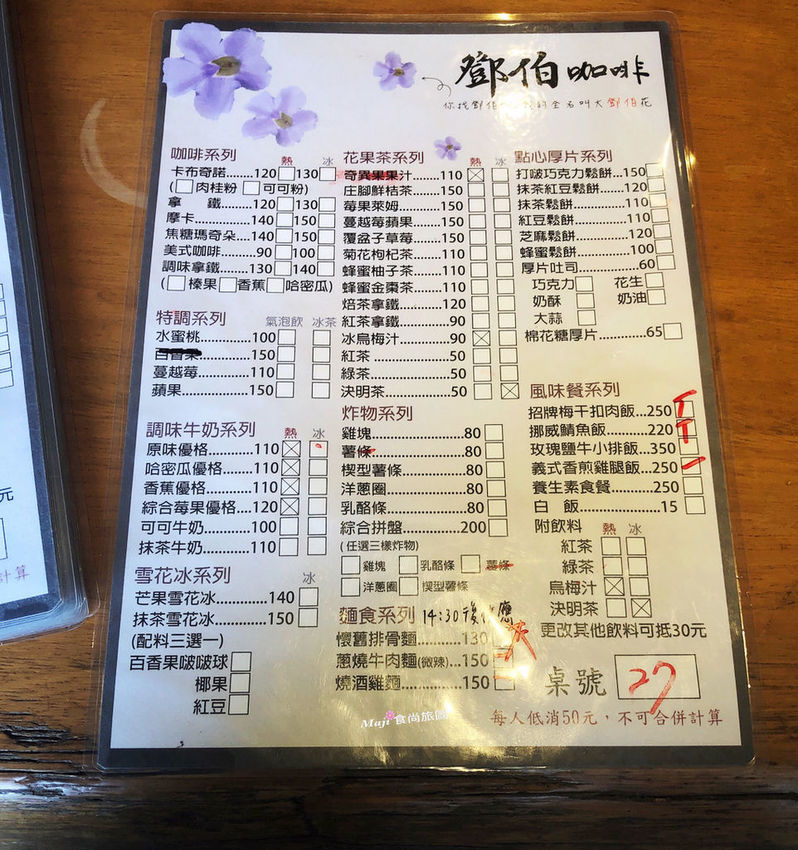 鄧伯咖啡
你找鄧伯 全名叫大鄧伯花
咖啡系列 熱 冰
卡布奇諾......120 130
(肉桂粉 可可粉)
拿 鐵............120 130
摩卡..............140 150
焦糖瑪奇朵...140 150
美式咖啡........90 100
調味拿鐵......130 140
(榛果 香蕉 哈密瓜)
特調系列 氣泡飲 冰茶
水蜜桃.............100
百香果.............150
蔓越莓.............110
蘋果................150
調味牛奶系列 熱 冰
原味優格...........110
哈密瓜優格.......110
香蕉優格...........110
綜合莓果優格...120
可可牛奶...........100
抹茶牛奶...........110
雪花冰系列 冰
芒果雪花冰.............140
抹茶雪花冰.............150
(配料三選一)
百香果啵啵球
椰果
紅豆
花果茶系列 熱 冰
奇異果果汁.......110
庄腳鮮桔茶.......150
莓果萊姆...........150
蔓越莓蘋果.......150
覆盆子草莓.......150
菊花枸杞茶.......110
蜂蜜柚子茶.......110
蜂蜜金棗茶.......110
焙茶拿鐵...........120
紅茶拿鐵.............90
冰烏梅汁.............90
紅茶....................50
綠茶....................50
決明茶................50
炸物系列
雞塊.........................80
薯條.........................80
楔型薯條..................80
洋蔥圈.....................80
乳酪條.....................80
綜合拼盤................200
(任選三樣炸物)
雞塊 乳酪條 薯條
洋蔥圈 楔型薯條
麵食系列 14:30後供應
懷舊排骨麵.............130
蔥燒牛肉麵(微辣)...150
燒酒雞麵................150
點心厚片系列
打啵巧克力鬆餅...150
抹茶紅豆鬆餅.......120
抹茶鬆餅..............110
紅豆鬆餅..............110
芝麻鬆餅..............120
蜂蜜鬆餅..............100
厚片吐司................60
巧克力 花生
奶酥 奶油
大蒜
棉花糖厚片............65
風味餐系列
招牌梅干扣肉飯...250
挪威鯖魚飯...........220
玫瑰鹽牛小排飯...350
義式香煎雞腿飯...250
養生素食餐...........250
白 飯.....................15
附飲料 熱 冰
紅茶
綠茶
烏梅汁
決明茶
更改其他飲料可抵30元
桌號 27
每人低消50元，不可合併計算
Muji食尚旅圖
元
計算